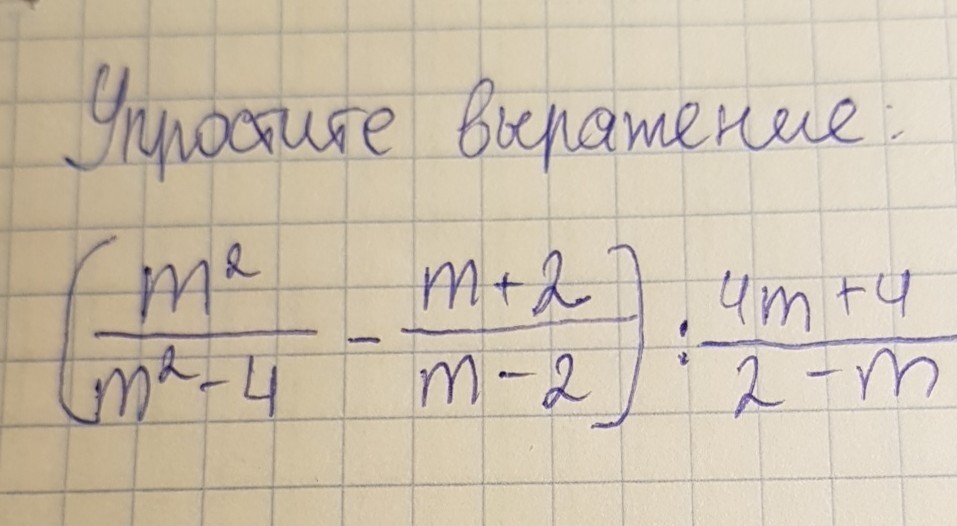 Упростите выражение:
(m²/(m²-4) - (m+2)/(m-2)) : (4m+4)/(2-m)